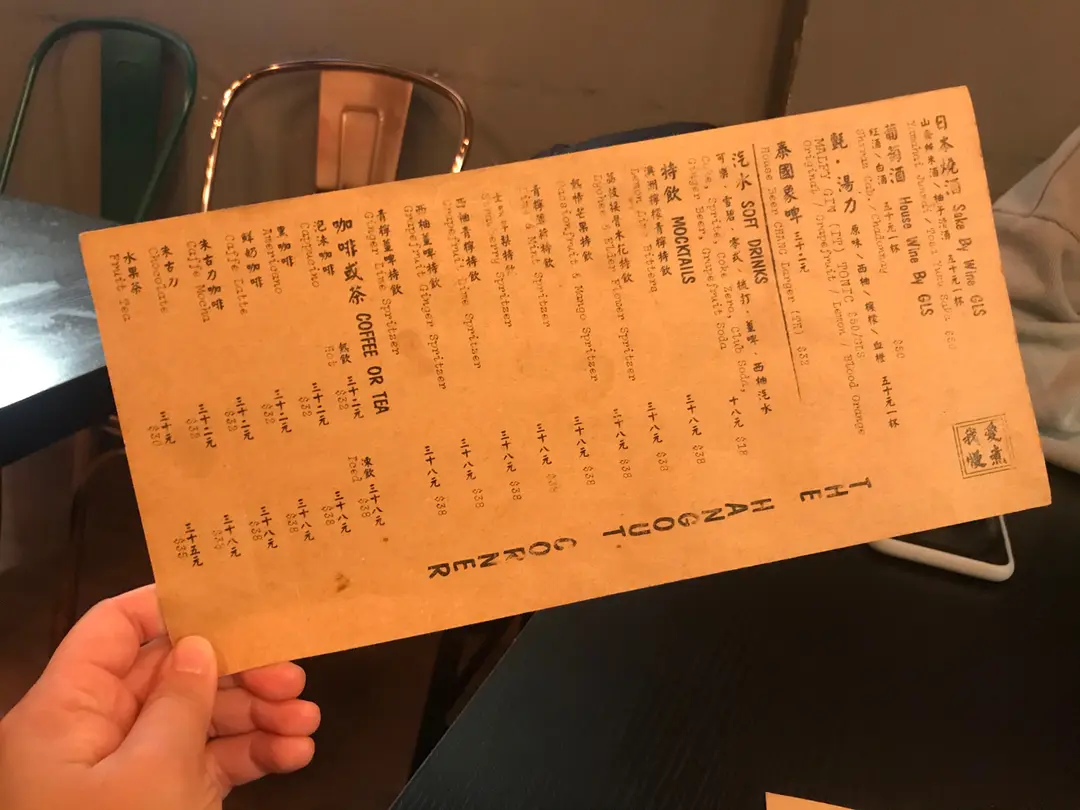 日本燒酒 Sake By Wine GLS
葡萄酒 House Wine By GLS
紅酒/白酒 五十元一杯
Shiraz Cab, Chadonnay $50
氈·湯力 原味/西柚/檸檬/血橙 五十元一杯
Original / Grapefruit / Lemon / Blood Orange
泰國象啤 三十八元
House Beer CHANG Langer (TH) $38
汽水 SOFT DRINKS
可樂·雪碧·零式·梳打·薑啤·西柚汽水 十八元 $18
Coke, Sprite, Coke Zero, Club Soda,
Ginger Beer, Grapefruit Soda
特飲 MOCKTAILS
澳洲檸檬青檸特飲 三十八元 $38
Lemon Lime Bitters
荔枝接骨木花特飲 三十八元 $38
Lychee & Elder Flower Spritzer
熱情芒果特飲 三十八元 $38
Passionfruit & Mango Spritzer
青檸薄荷特飲 三十八元 $38
Lime & Mint Spritzer
士多啤梨特飲 三十八元 $38
Strawberry Spritzer
西柚青檸特飲 三十八元 $38
Grapefruit Lime Spritzer
西柚薑啤特飲 三十八元 $38
Grapefruit Ginger Spritzer
青檸薑啤特飲 三十八元 $38
Ginger Lime Spritzer
咖啡或茶 COFFEE OR TEA
熱飲 凍飲
Hot Iced
泡沫咖啡 三十二元 三十八元
Cappucino $32 $38
黑咖啡 三十二元 三十八元
Americano $32 $38
鮮奶咖啡 三十二元 三十八元
Caffe Latte $38
朱古力咖啡 三十二元 三十八元
Caffe Mocha $38
朱古力 三十二元 三十八元
Chocolate
水果茶 三十元 三十五元
Fruit Tea $30 $35
THE HANGOUT CORNER
愛煮
我慢